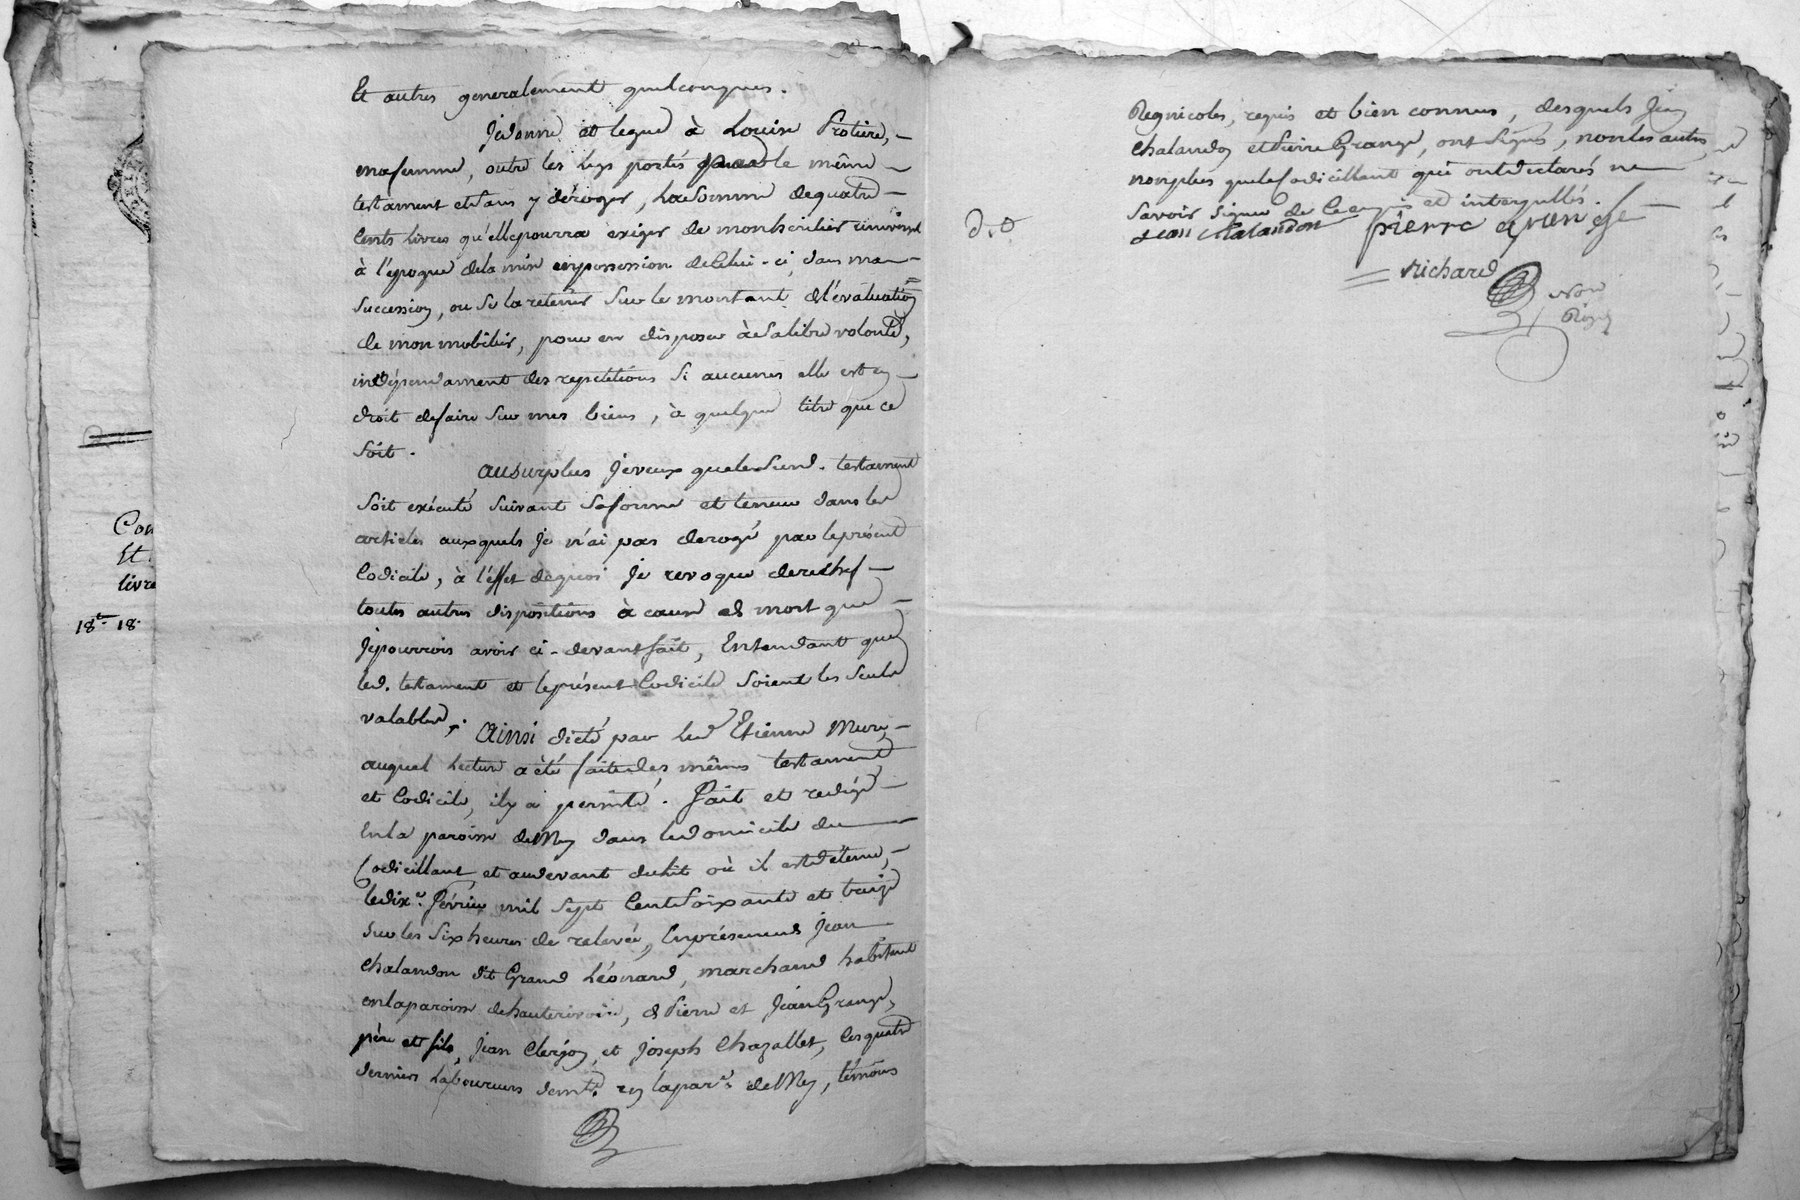 Et autres generalement quelconques.
Je donne et legue à Louise Protiere,
ma femme, outre les legs portés par le même
testament et sans y déroger, la somme de quatre
Cents Livres qu'elle pourra exiger de mon heritier universel
à l'epoque de la mise en possession de Celui-ci, dans ma
Succession, ou se la retenir sur le montant de l'évaluation
de mon mobilier, pour en disposer à sa libre volonté,
indépendament des repetitions si aucunes elle est en
droit de faire sur mes biens, à quelque titre que ce
soit.
au surplus je veux que le susd. testament
soit exécuté suivant sa forme et teneur dans les
articles auxquels je n'ai pas derogé par le présent
Codicile, à l'effet de quoi je revoque derechef
toutes autres dispositions à cause de mort que
je pourrois avoir ci-devant fait, Entendant que
led. testament et le présent Codicile soient les seuls
valables.
Ainsi dicté par led Etienne Mure,
auquel lecture a été faite des mêmes testament
et Codicile, il y a persisté. Fait et redigé
En la paroisse de Mey dans le domicile du
Codicillant et au devant du lit où il est détenu,
le dix.e Février mil sept Cent soixante et treize
sur les six heures de relevée, En présence de Jean
Chalandon dit Grand Léonard, marchand habitant
en la paroisse de hauterivoire, de Pierre et Jean Grange,
père et fils, Jean Clerjon, et Joseph Chazallet, les quatre
derniers Laboureurs demts. en la par.e de Mey, témoins
Regnicoles, requis et bien connus, desquels Jean
Chalandon et Pierre Grange, ont signés, non les autres
non plus que le Codicillant qui ont déclarés ne
savoir signer de Ce enquis et interpellés.
d. d
Jean Chalandon Pierre Grange
Richard
Nore
Royal
Con
Et
livre
18 18